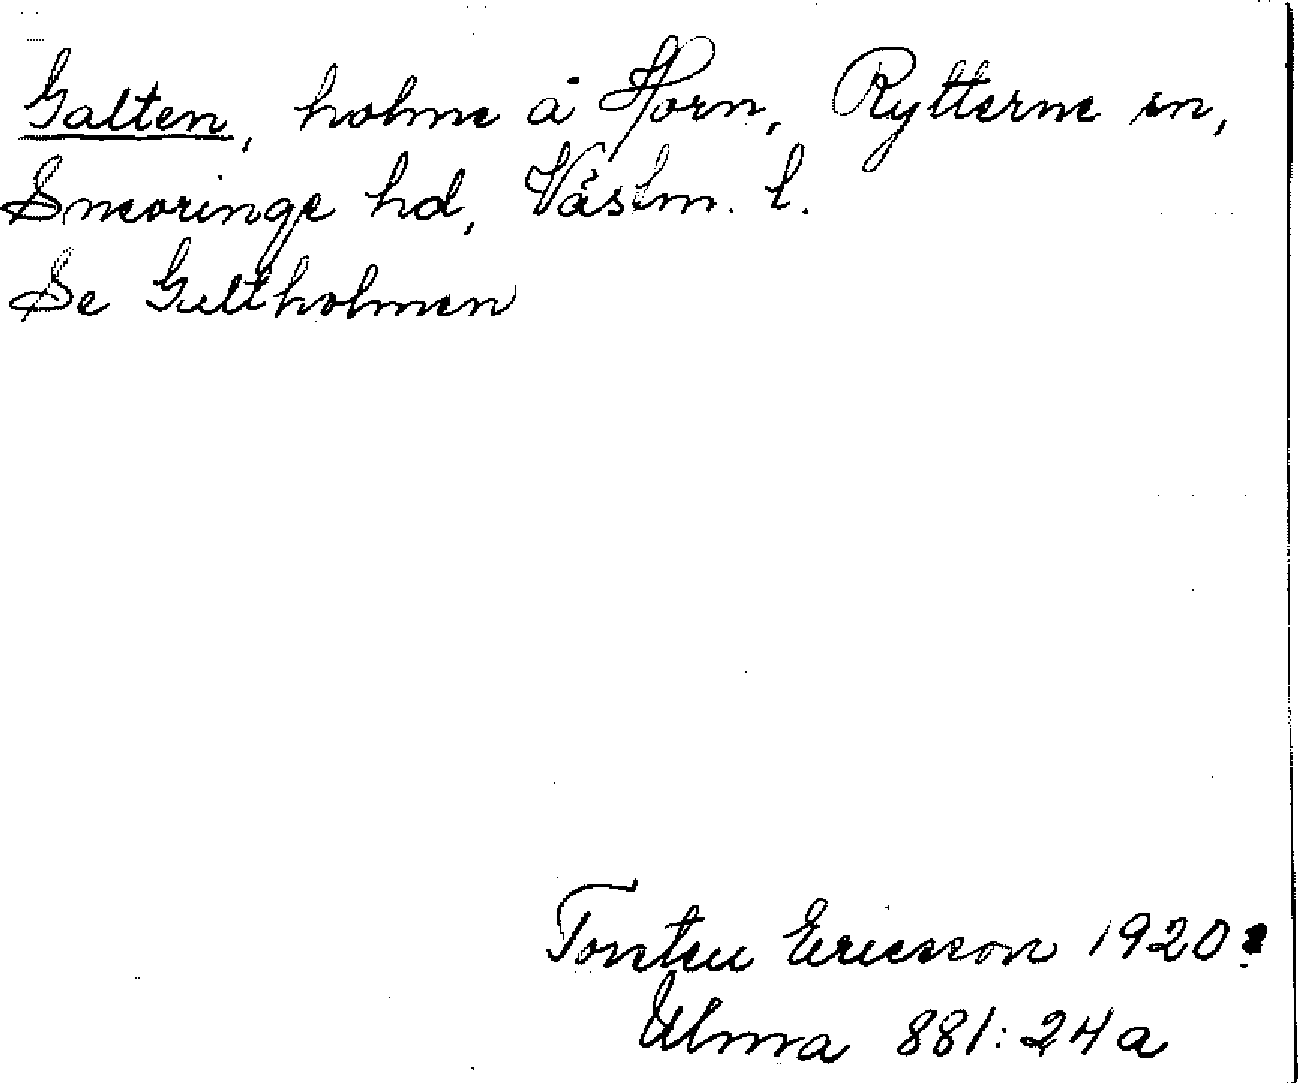 Galten, holme å Horn, Rytterne sn,
Snevringe hd, Västm. l.
Se Galtholmen
Torsten Ericsson 1920?
Ulma 881:24a